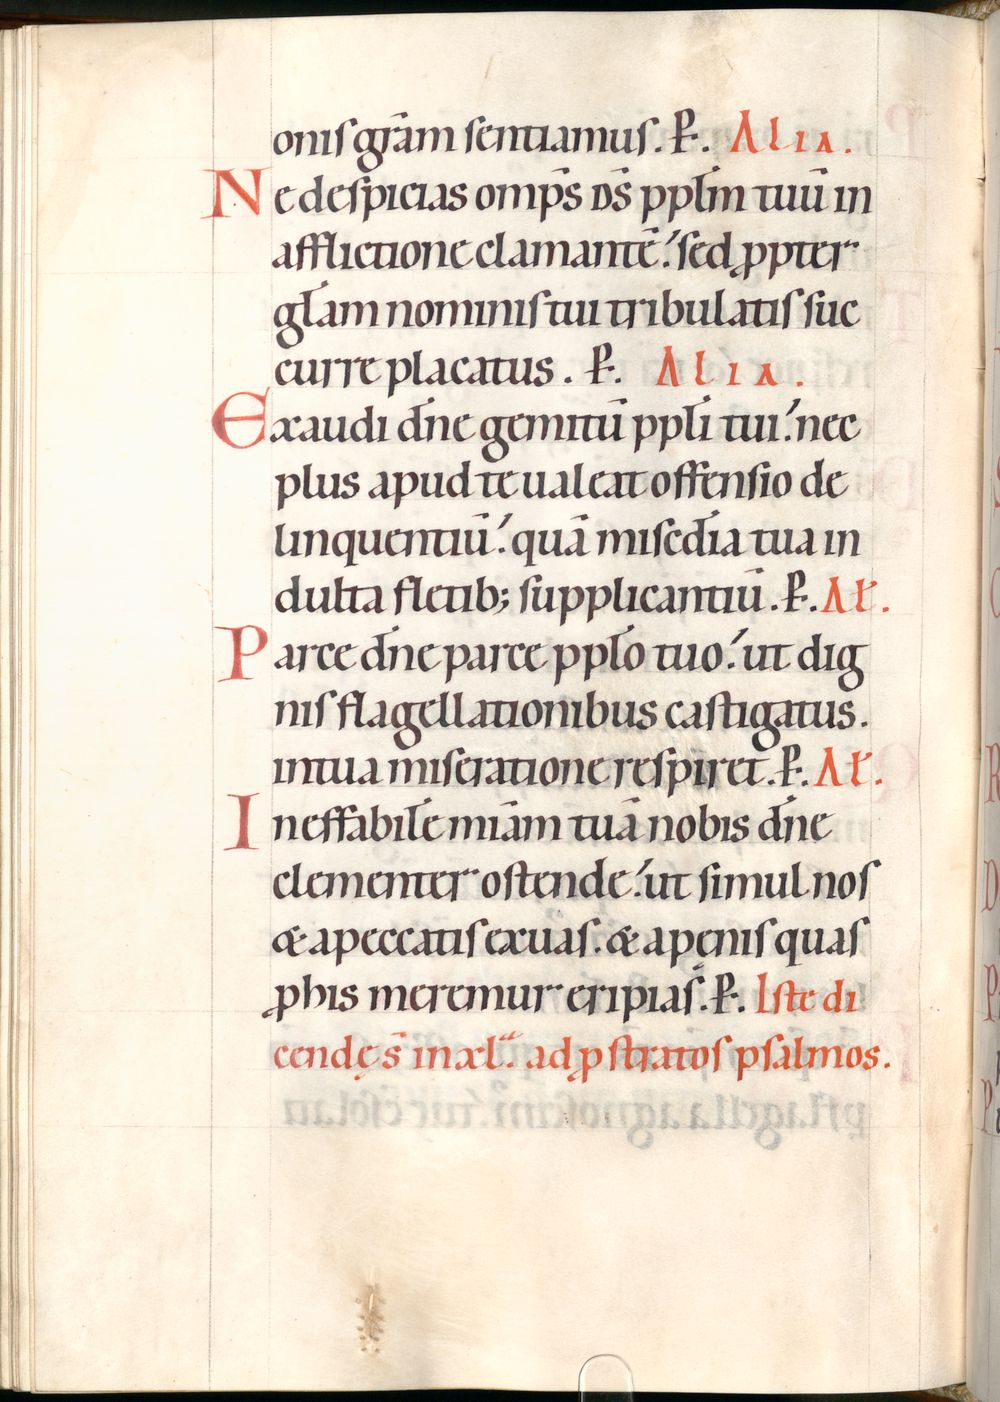 onis gr̄am sentiamus. P. Alia.
Ne despicias omp̄s d̄s ppl̄m tuū in
afflictione clamantē. sed ꝓpter
gl̄am nominis tui tribulatis suc
curre placatus. P. Alia.
Exaudi dn̄e gemitū ppl̄i tui. nec
plus apud te ualeat offensio de
linquentiū. quā misedia tua in
dulta fletib; supplicantiū. P. Al̄.
Parce dn̄e parce ppl̄o tuo. ut dig
nis flagellationibus castigatus.
in tua miseratione respiret. P. Al̄.
Ineffabilē miām tuā nobis dn̄e
clementer ostende. ut simul nos
& a peccatis exuas. & a penis quas
ꝓ his meremur eripias. P. Iste di
cendę s̄ in xl.ᵃ ad ꝓstratos psalmos.